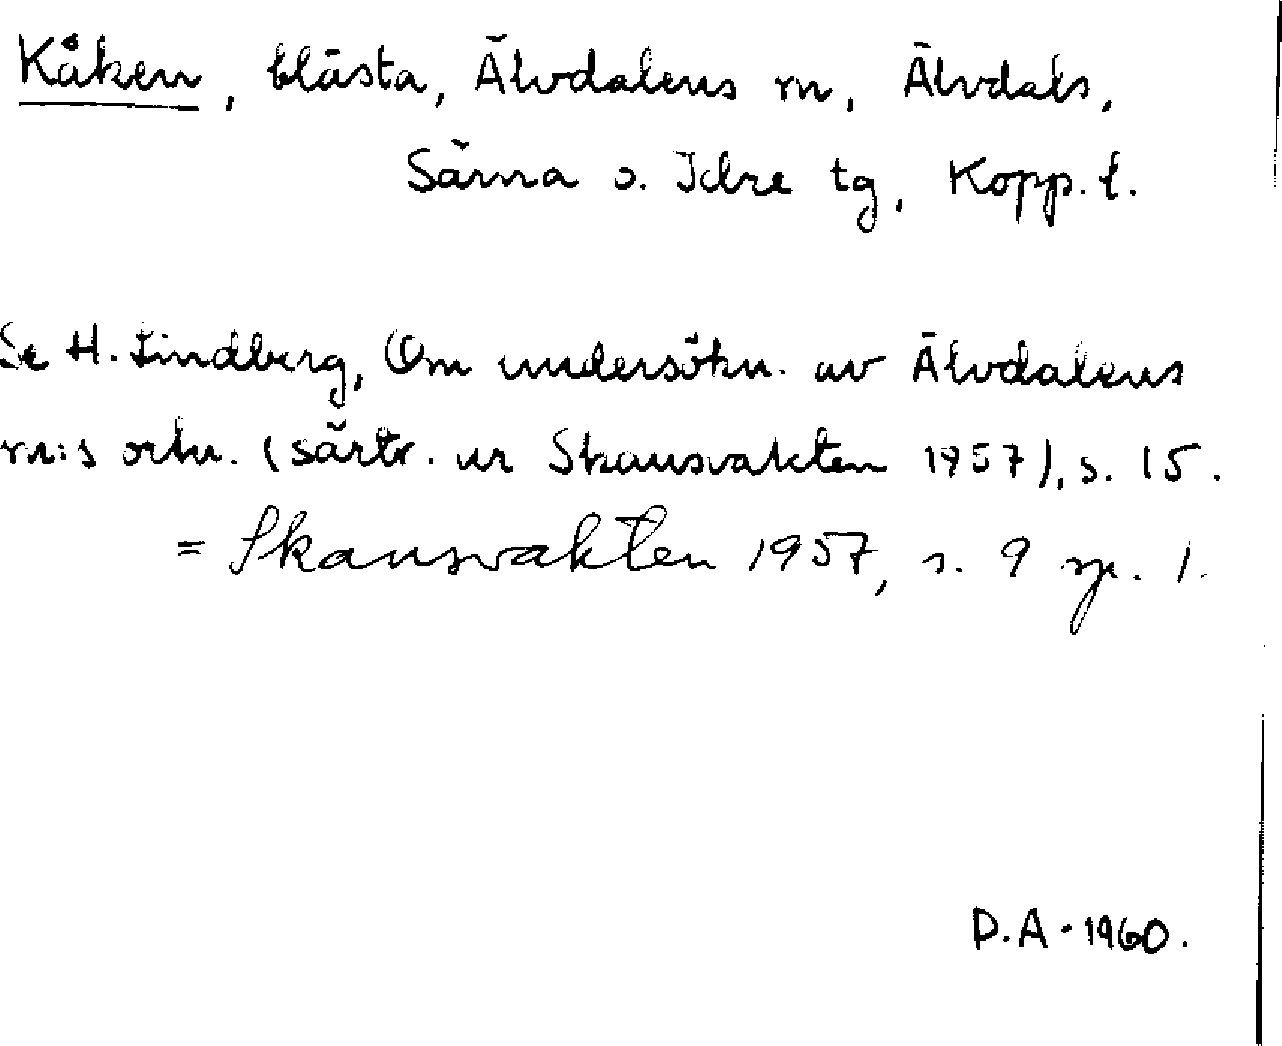 Kåken, blästa, Älvdalens rn, Älvdals,
Särna o. Idre tg, Kopp. l.
Se H. Lindberg, Om undersökn. av Älvdalens
rn:s ortn. (särtr. ur Skansvakten 1957), s. 15.
= Skansvakten 1957, s. 9 sp. 1.
D.A. 1960.